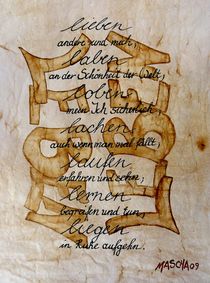 lieben
andere und mich,
laben
an der Schönheit der Welt,
loben
mein Ich sicherlich
lachen
auch wenn man mal fällt,
laufen
erfahren und sehn,
lernen
begreifen und tun,
liegen
in Ruhe aufgehn.
MASCHA09